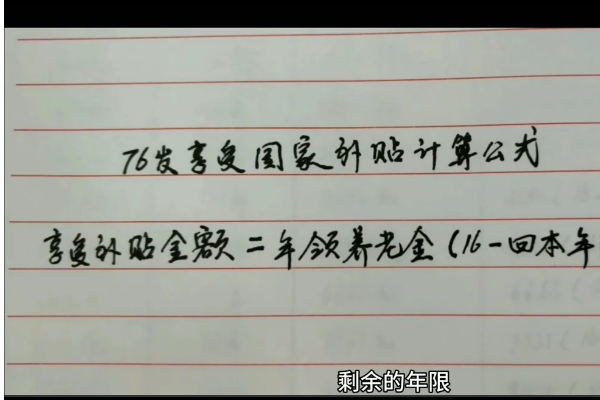 76岁享受国家补贴计算公式
享受补贴金额=年领养老金(16-回本年
剩余的年限